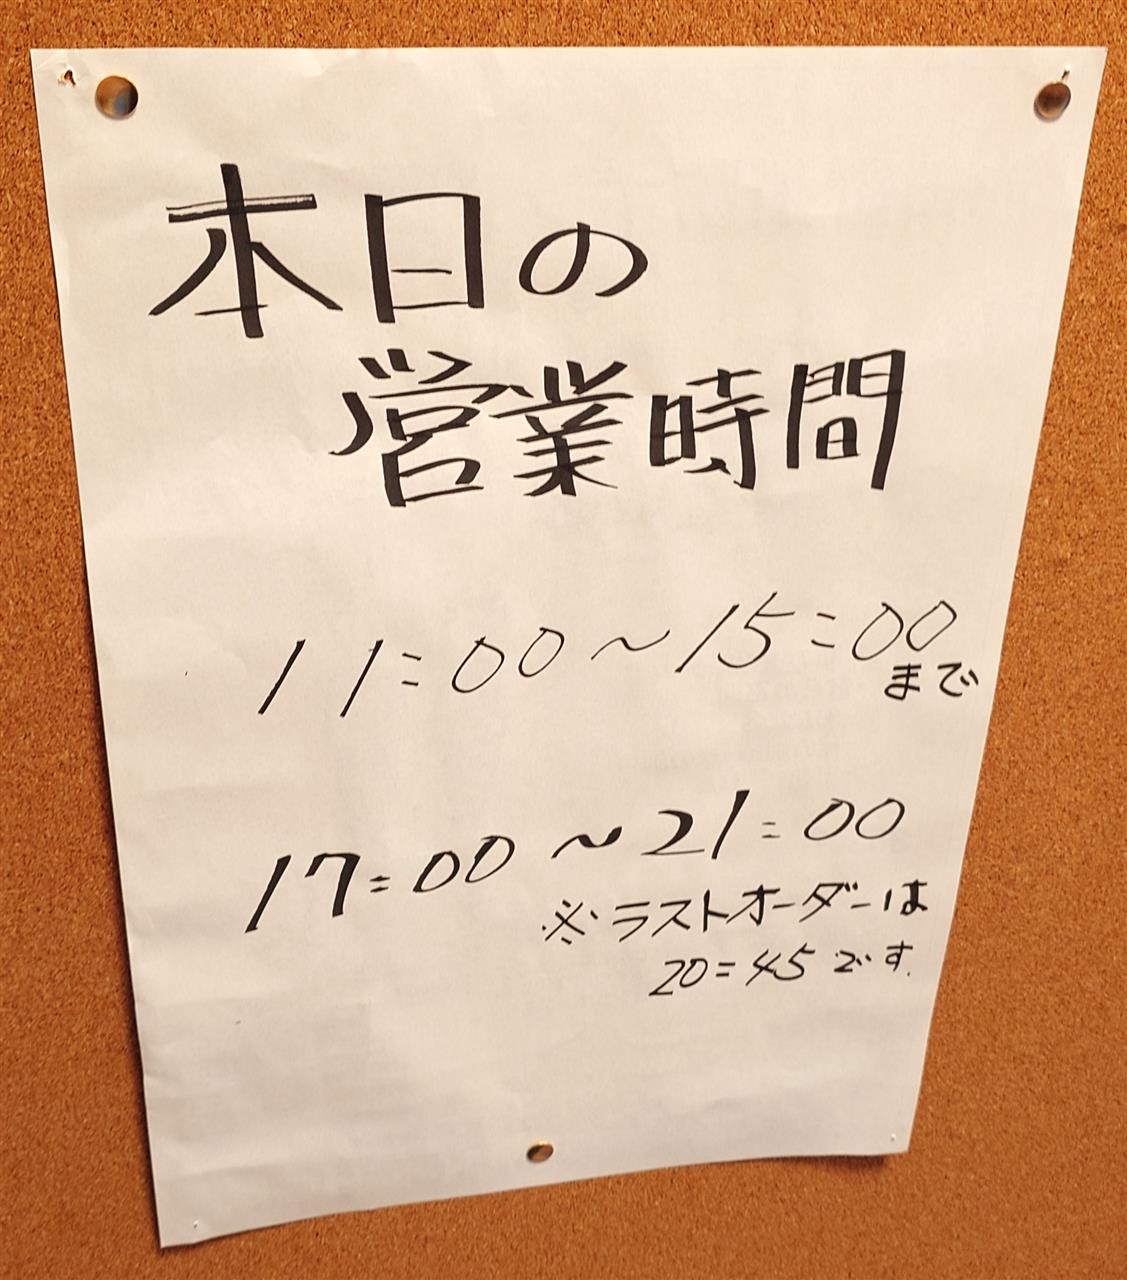 本日の
営業時間
11:00～15:00
まで
17:00～21:00
※ラストオーダーは
20:45です。